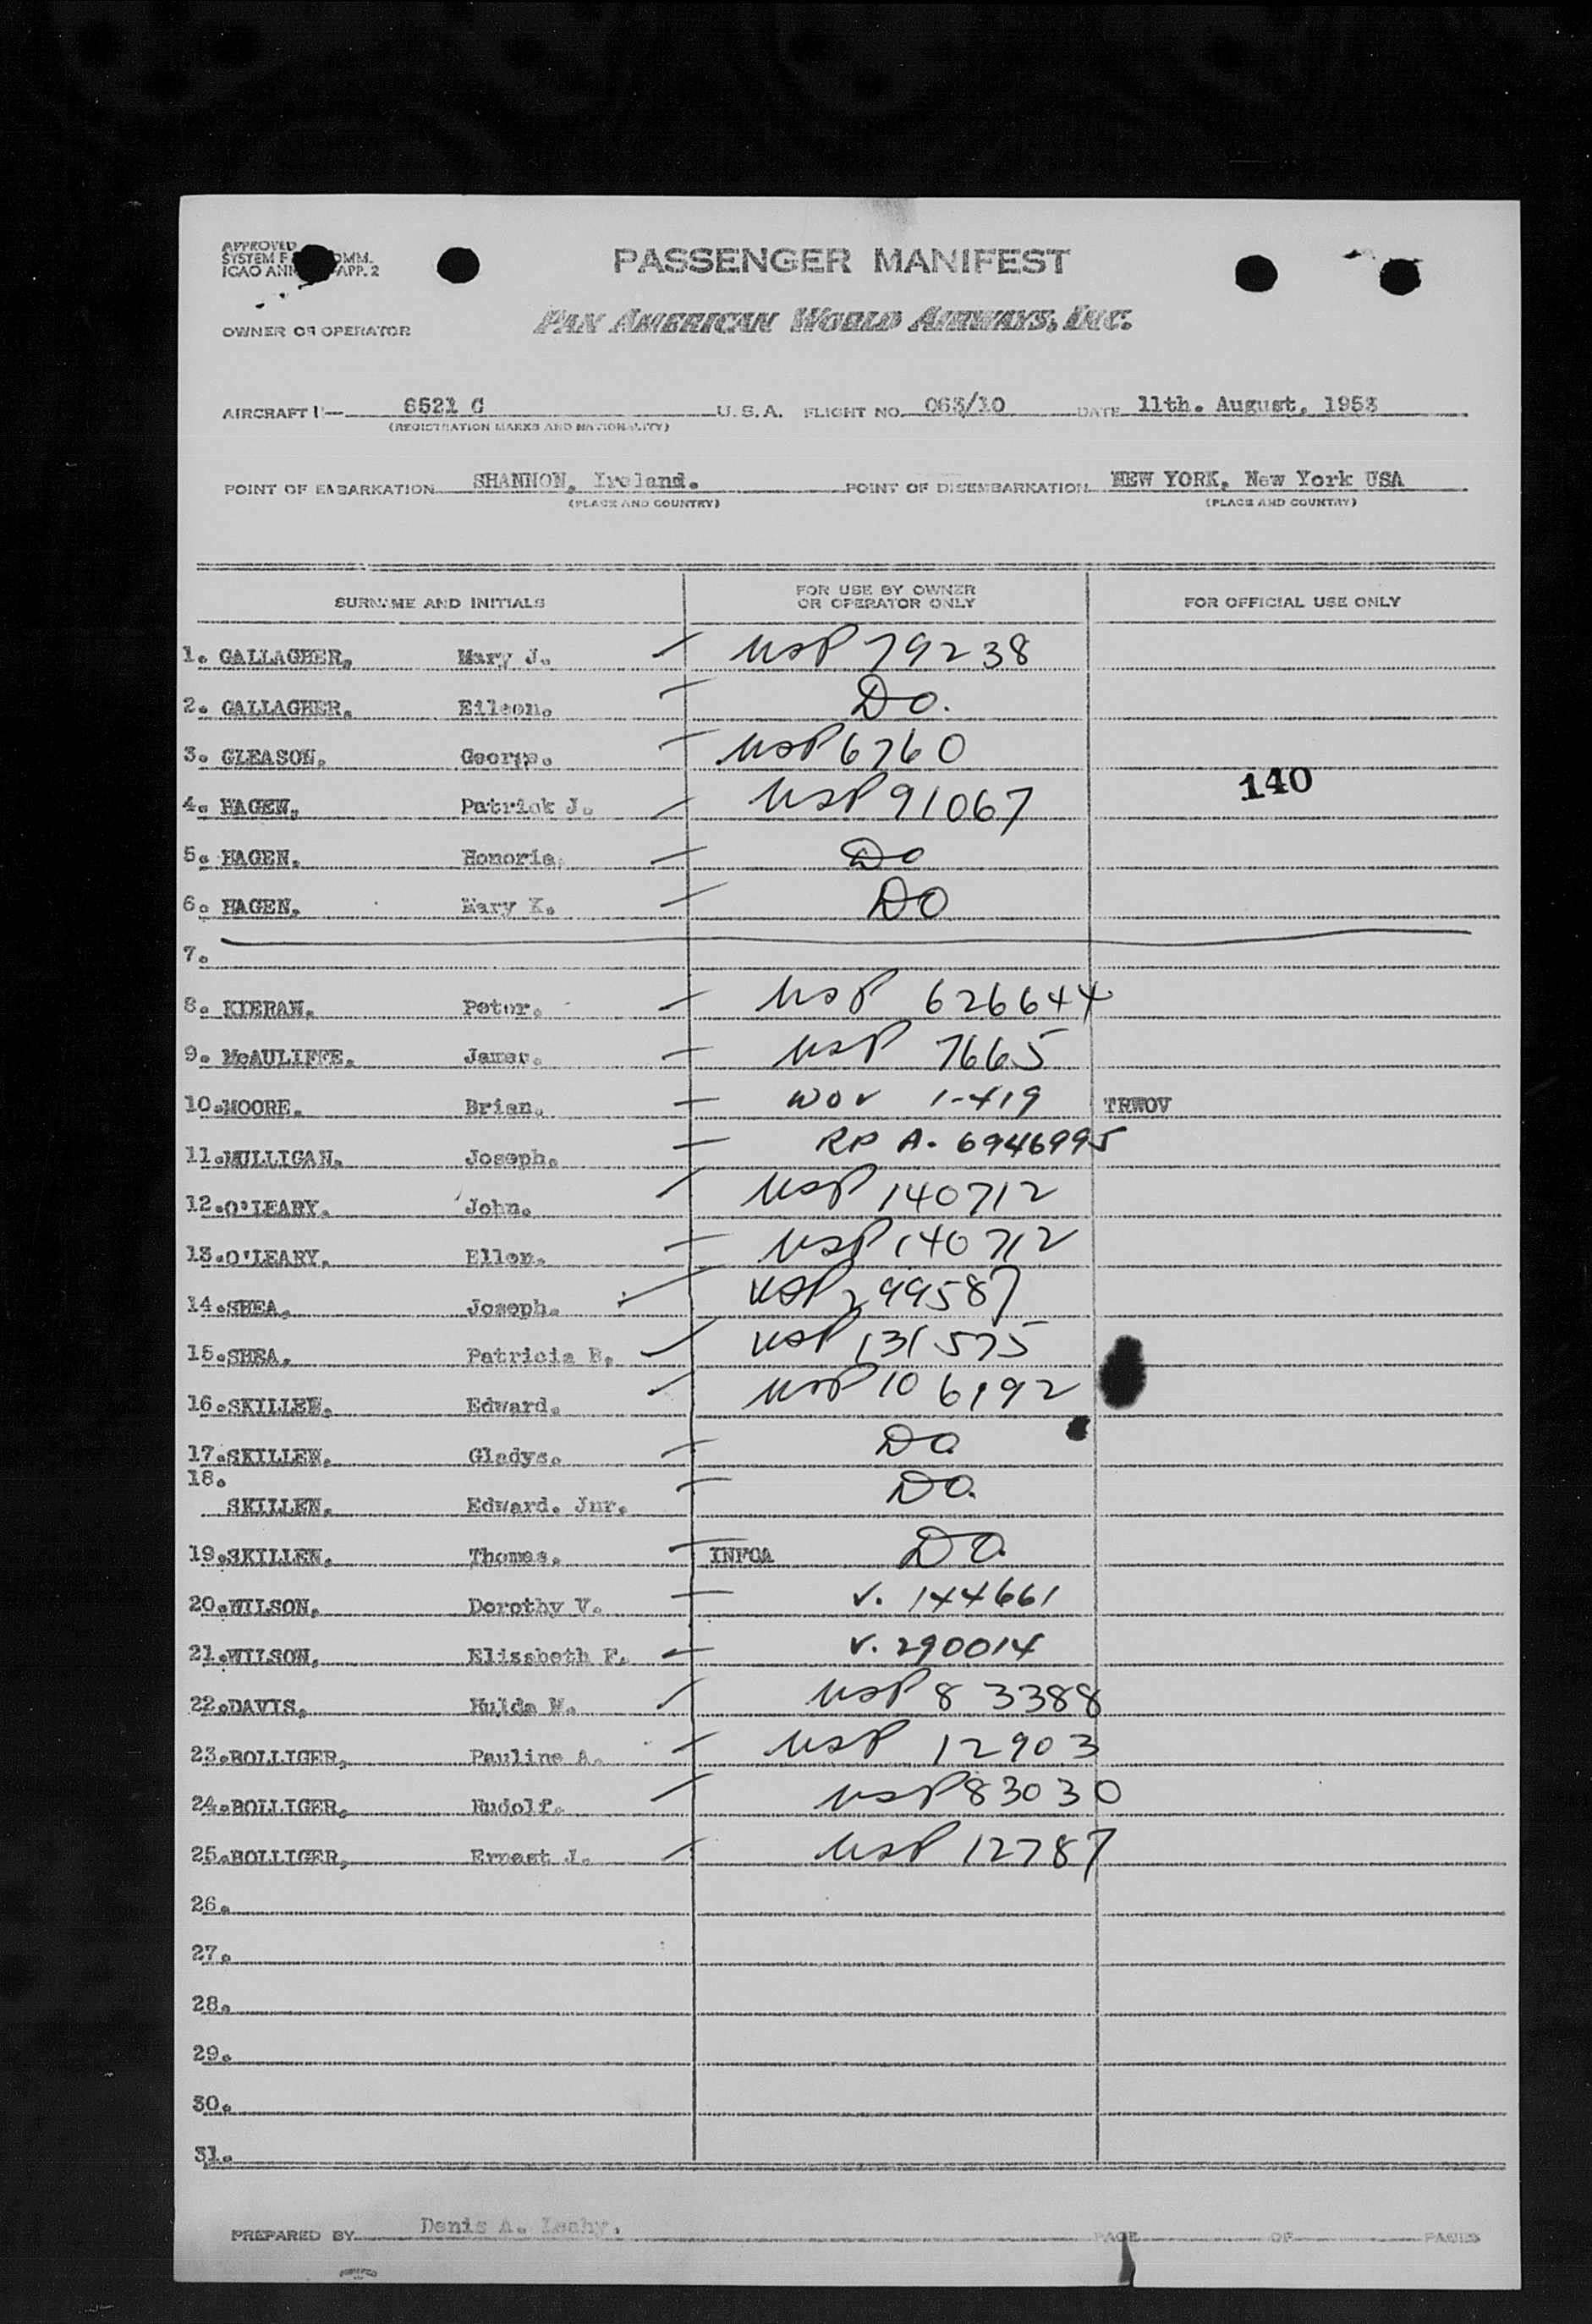 APPROVED
SYSTEM F OMM.
ICAO ANN APP. 2
PASSENGER MANIFEST
OWNER OR OPERATOR PAN AMERICAN WORLD AIRWAYS, INC.
AIRCRAFT U— 6521 C U.S.A. FLIGHT NO. 063/10 DATE 11th. August, 1953
(REGISTRATION MARKS AND NATIONALITY)
POINT OF EMBARKATION SHANNON, Ireland. POINT OF DISEMBARKATION NEW YORK, New York USA
(PLACE AND COUNTRY) (PLACE AND COUNTRY)
SURNAME AND INITIALS FOR USE BY OWNER OR OPERATOR ONLY FOR OFFICIAL USE ONLY
1. GALLAGHER, Mary J. USP 79238
2. GALLAGHER, Eileen. DO.
3. GLEASON, George. USP 6760
140
4. HAGEN, Patrick J. USP 91067
5. HAGEN. Honoria. DO
6. HAGEN. Mary K. DO
7.
8. KIERAN. Peter. USP 626644
9. McAULIFFE. James. USP 7665
10. MOORE. Brian. WOV 1-419 TRWOV
11. MULLIGAN. Joseph. RP A. 6946995
12. O'LEARY. John. USP 140712
13. O'LEARY. Ellen. USP 140712
14. SHEA. Joseph. USP 299587
15. SHEA. Patricia B. USP 131575
16. SKILLEN. Edward. USP 106192
17. SKILLEN. Gladys. DO
18.
SKILLEN. Edward. Jnr. DO.
19. SKILLEN. Thomas. INFOA DO.
20. WILSON. Dorothy V. V. 144661
21. WILSON. Elizabeth F. V. 290014
22. DAVIS. Hulda M. USP 83388
23. BOLLIGER, Pauline A. USP 12903
24. BOLLIGER, Rudolf. USP 83030
25. BOLLIGER, Ernest J. USP 12787
26.
27.
28.
29.
30.
31.
PREPARED BY Denis A. Leahy. PAGE OF PAGES